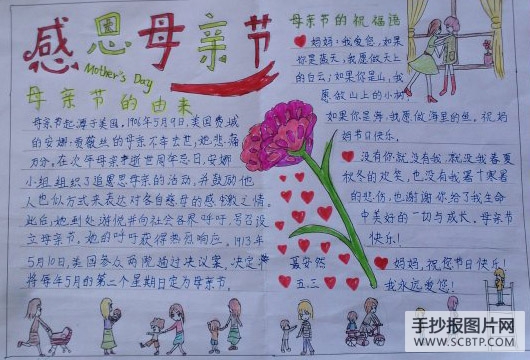 感恩母亲节
Mother's Day
母亲节的由来
母亲节起源于美国。1906年5月9日,美国费城
的安娜·贾薇丝的母亲不幸去世,她悲痛
万分。在次年母亲逝世周年忌日,安娜
小姐组织了追思母亲的活动,并鼓励他
人也以类似方式来表达对各自慈母的感激之情。
此后,她到处游说并向社会各界呼吁,号召设
立母亲节。她的呼吁获得热烈响应。1913年
5月10日,美国参众两院通过决议案,决定
将每年5月的第二个星期日定为母亲节。
母亲节的祝福语
妈妈:我爱您,如果
你是蓝天,我愿做天上
的白云;如果你是山,我
愿做山上的小树;
如果你是海,我愿做海里的鱼。祝妈
妈节日快乐。
没有你就没有我,就没我春夏
秋冬的欢笑,也没有我署寒署
的悲伤,也谢谢你给了我生命
中美好的一切与成长。母亲节
快乐!
妈妈,祝您节日快乐!
我永远爱您!
安然
五.三
手抄报图片网
WWW.SCBTP.COM